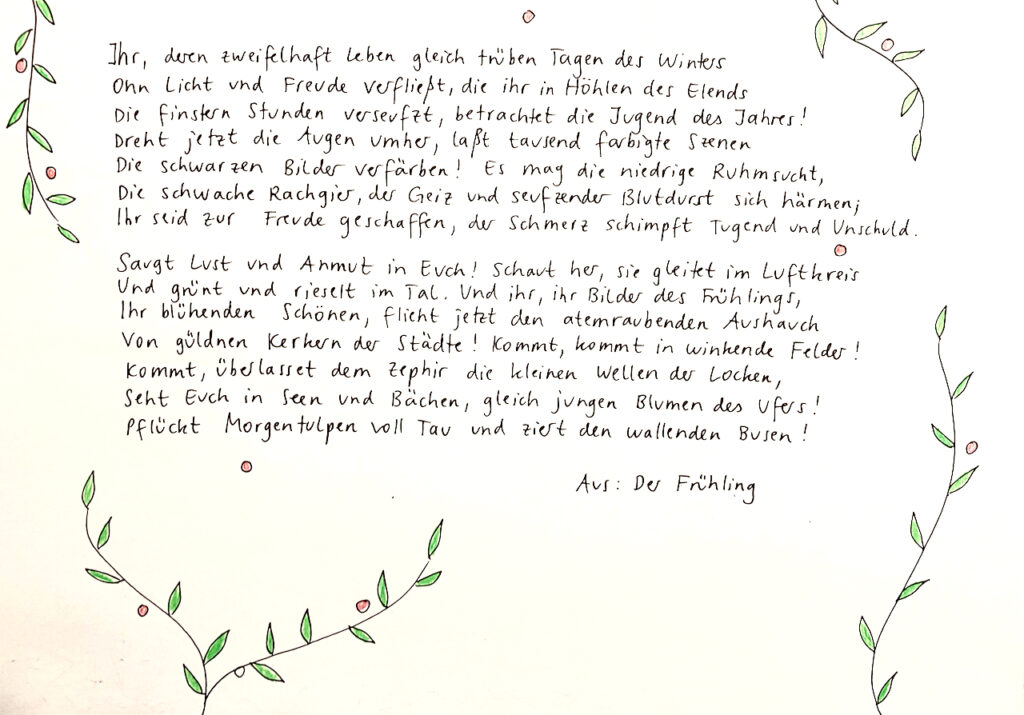 Ihr, deren zweifelhaft Leben gleich trüben Tagen des Winters
Ohn Licht und Freude verfließt, die ihr in Höhlen des Elends
Die finstern Stunden verseufzt, betrachtet die Jugend des Jahres!
Dreht jetzt die Augen umher, laßt tausend farbigte Szenen
Die schwarzen Bilder verfärben! Es mag die niedrige Ruhmsucht,
Die schwache Rachgier, der Geiz und seufzender Blutdurst sich härmen;
Ihr seid zur Freude geschaffen, der Schmerz schimpft Tugend und Unschuld.
Saugt Lust und Anmut in Euch! Schaut her, sie gleitet im Luftkreis
Und grünt und rieselt im Tal. Und ihr, ihr Bilder des Frühlings,
Ihr blühenden Schönen, flieht jetzt den atemraubenden Aushauch
Von güldnen Kerkern der Städte! Kommt, kommt in winkende Felder!
Kommt, überlasset dem Zephir die kleinen Wellen der Locken,
Seht Euch in Seen und Bächen, gleich jungen Blumen des Ufers!
Pflückt Morgentulpen voll Tau und ziert den wallenden Busen!
Aus: Der Frühling